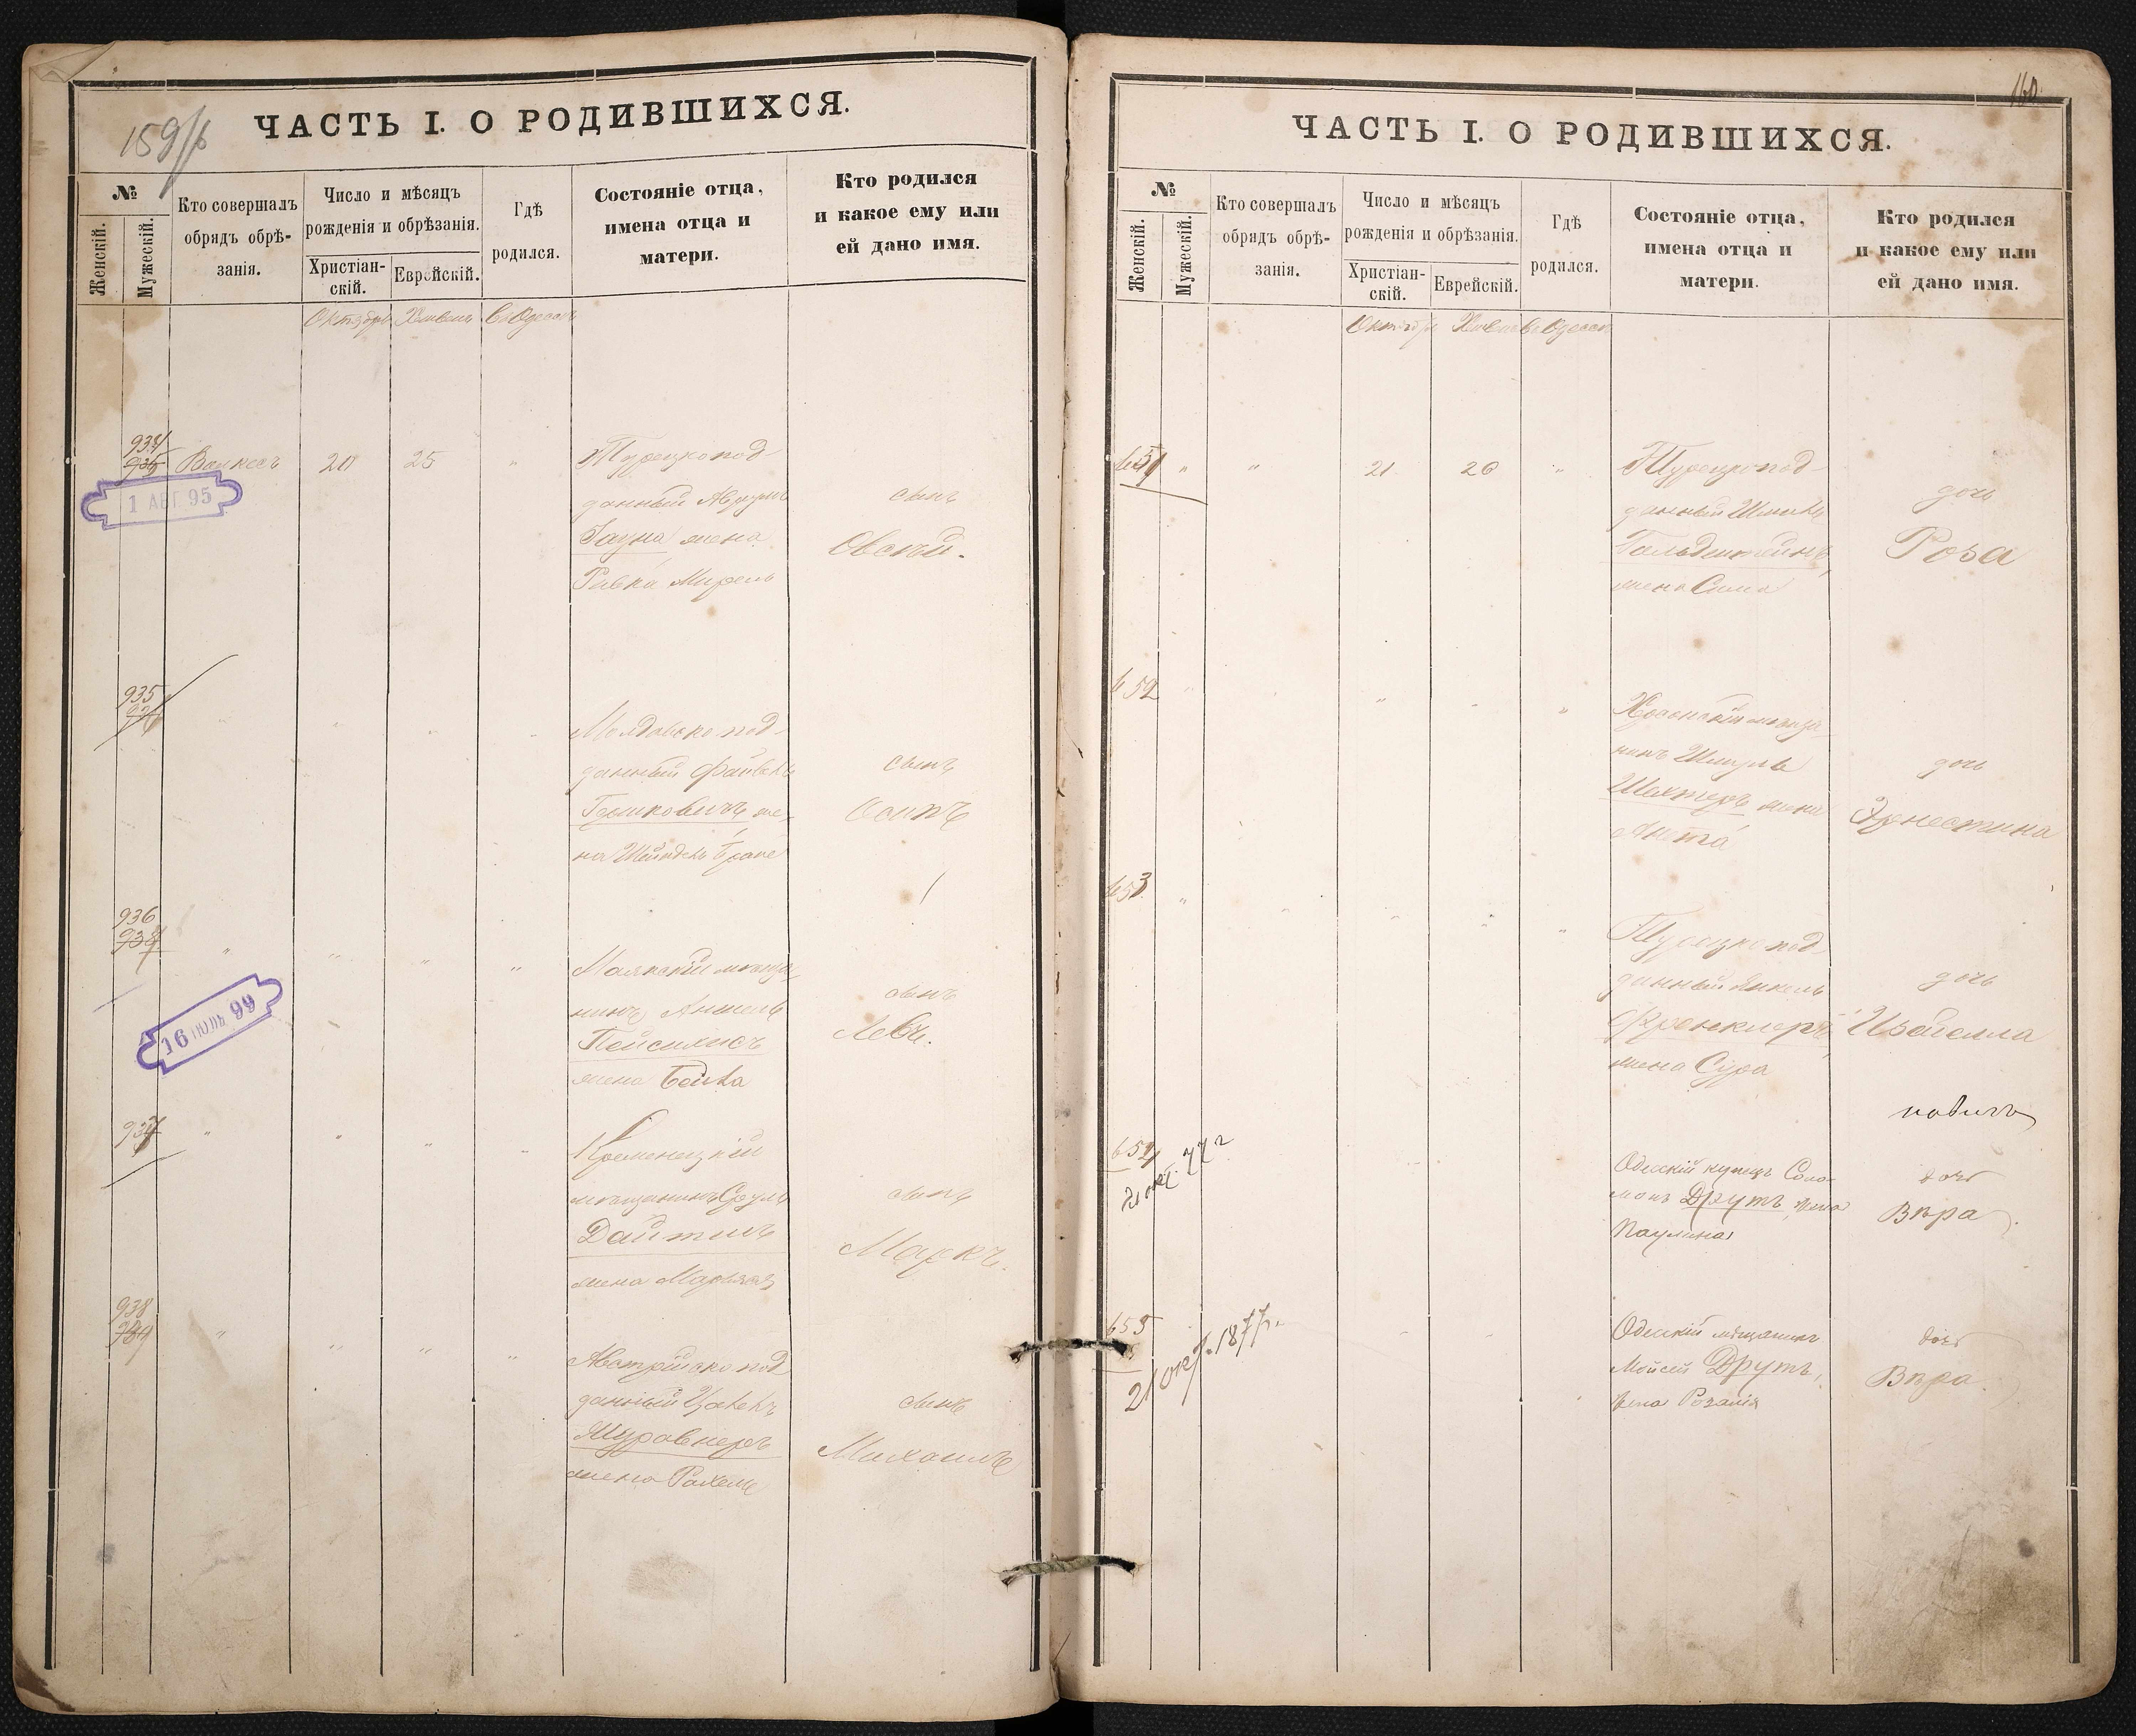 159/б
ЧАСТЬ I. О РОДИВШИХСЯ.
№
Женскій.
Мужескій.
Кто совершалъ
обрядъ обрѣ-
занія.
Число и мѣсяцъ
рожденія и обрѣзанія.
Христіан-
скій.
Еврейскій.
Гдѣ
родился.
Состояніе отца,
имена отца и
матери.
Кто родился
и какое ему или
ей дано имя.
Октябрь Хешвенъ Въ Одессѣ
934
936 20 25 "
Турецкопод-
данный
жена
Ривка Мирель
сынъ
Овсѣй.
1 АВГ 95
935
Молдавскопод-
данный Файвель
Гершковичъ же-
на Шейндель
сынъ
Осипъ
936
938
Маякскій мѣща-
нинъ Аншель
Пейсихисъ
жена Бейла
сынъ
Левъ.
16 99
937
Кременецкій
мѣщанинъ Сруль
Дайтшъ
жена
сынъ
Маркъ.
938
939
Австрійскопод
данный
Журавнеръ
жена Рахель
сынъ
Михаилъ
160
ЧАСТЬ I. О РОДИВШИХСЯ.
№
Женскій.
Мужескій.
Кто совершалъ
обрядъ обрѣ-
занія.
Число и мѣсяцъ
рожденія и обрѣзанія.
Христіан-
скій.
Еврейскій.
Гдѣ
родился.
Состояніе отца,
имена отца и
матери.
Кто родился
и какое ему или
ей дано имя.
Октябр Хешвенъ Въ Одессѣ
651 " " 21 26 "
Турецкопод-
данный
Гольденштейнъ,
жена Сима
дочь
Роза
652
Херсонскій мѣща-
нинъ Шмуль
Шехтеръ жена
Анета
дочь
Эрнестина
653
Турецкопод-
данный Янкель
жена Сура
дочь
Изабелла
654
21 окт. 77 г
Одесскій купецъ Соло-
монъ Друтъ, жена
Паулина
дочь
Вѣра
655
21 окт. 1877 г.
Одесскій мѣщанинъ
Мойсей Друтъ,
жена Розалія
дочь
Вѣра